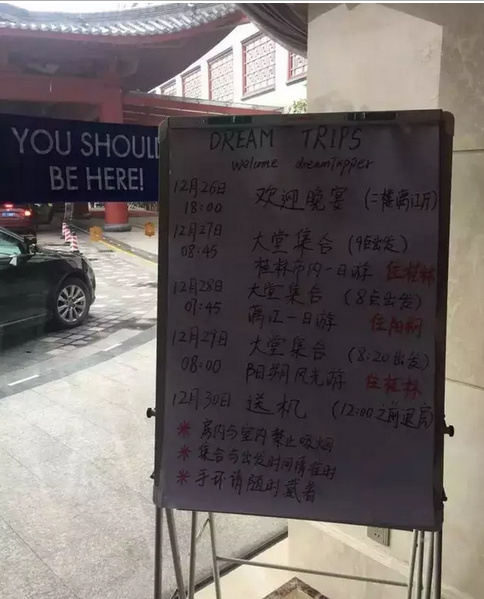 YOU SHOULD
BE HERE!
DREAM TRIPS
Welcome dreamTripper
12月26日
18:00
欢迎晚宴 (二楼漓江厅)
12月27日
08:45
大堂集合 (9点出发)
桂林市内一日游 住桂林
12月28日
07:45
大堂集合 (8点出发)
漓江一日游 住阳朔
12月29日
08:00
大堂集合 (8:20出发)
阳朔风光游 住桂林
12月30日 送机 (12:00之前退房)
* 房内与室内禁止吸烟
* 集合与出发时间请准时
* 手环请随时戴着